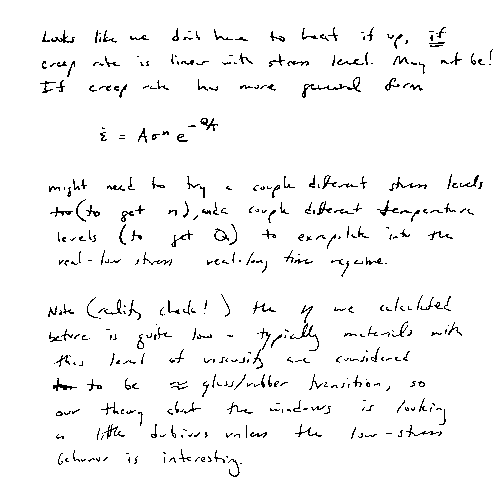 Looks like we don't have to heat it up, if
creep rate is linear with stress level. May not be!
If creep rate has more general form
ε̇ = Aσⁿ e^-Q/
might need to try a couple different stress levels
(to get n), and a couple different temperature
levels (to get Q) to extrapolate into the
real-low stress real-long time regime.
Note (reality check!) the η we calculated
before is quite low - typically materials with
this level of viscosity are considered
to be ≈ glass/rubber transition, so
our theory about the windows is looking
a little dubious unless the low-stress
behavior is interesting.